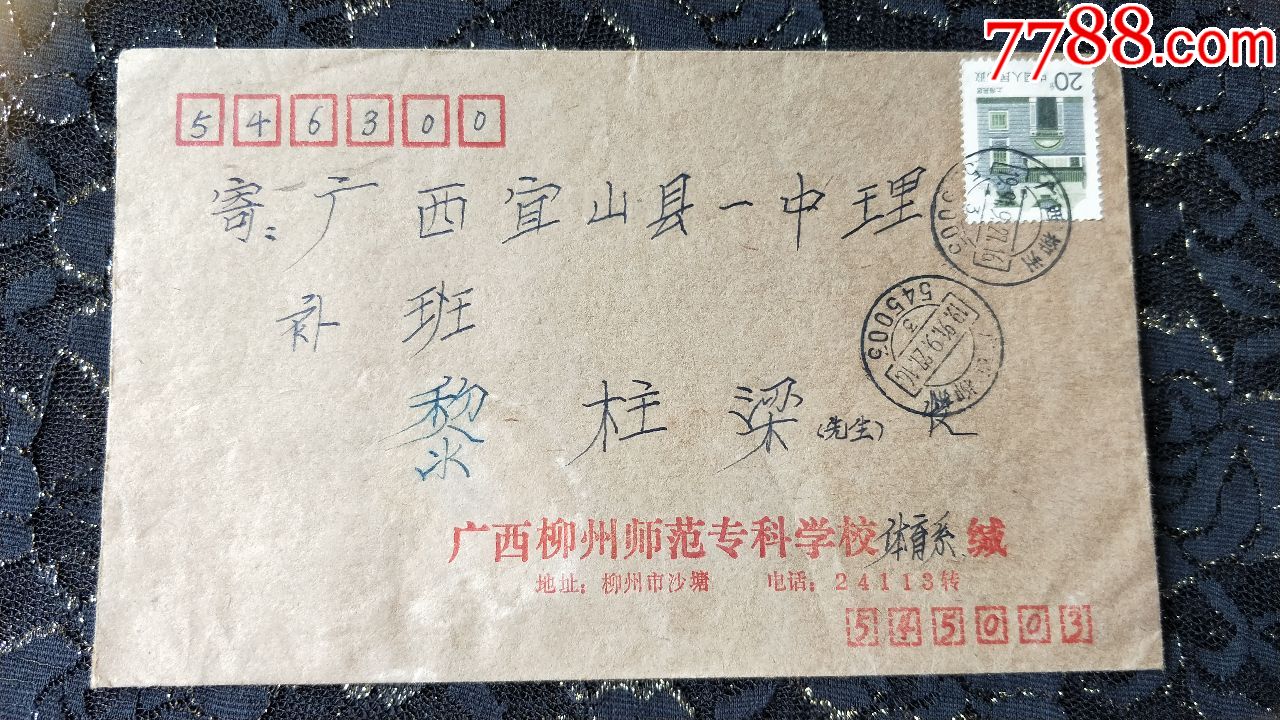 7788.com
20分
中国人民邮政
上海民居
546300
寄：广西宜山县一中理
补班
黎柱梁（先生）收
545003
广西柳州
广西柳州师范专科学校体育系缄
地址：柳州市沙塘 电话：24113转
545003